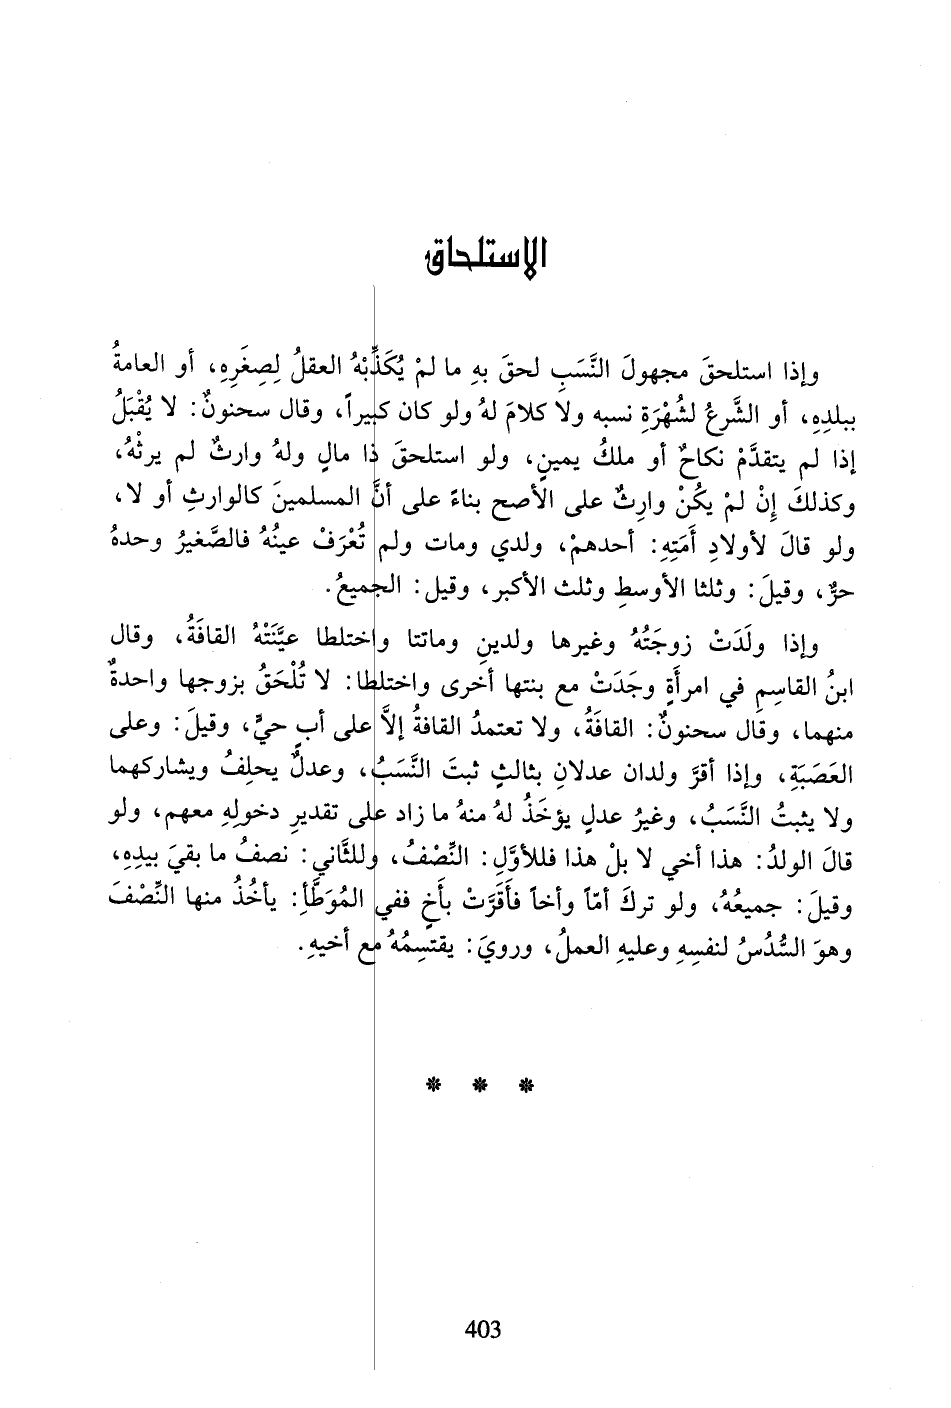 الاستلحاق
وإذا استلحقَ مجهولَ النَّسَبِ لحقَ بهِ ما لمْ يُكَذِّبْهُ العقلُ لِصِغَرِهِ، أو العامةُ
ببلدِهِ، أو الشَّرعُ لشُهْرَةِ نسبه ولا كلامَ لهُ ولو كان كبيراً، وقال سحنونٌ: لا يُقْبَلُ
إذا لم يتقدَّمْ نكاحٌ أو ملكُ يمينٍ، ولو استلحقَ ذا مالٍ ولهُ وارثٌ لم يرثْهُ،
وكذلكَ إِنْ لمْ يكُنْ وارِثٌ على الأصح بناءً على أنَّ المسلمينَ كالوارثِ أو لا،
ولو قالَ لأولادِ أَمَتِهِ: أحدهمْ، ولدي ومات ولم تُعْرَفْ عينُهُ فالصَّغيرُ وحدهُ
حرٌّ، وقيلَ: وثلثا الأوسطِ وثلث الأكبر، وقيل: الجميعُ.
وإذا ولَدَتْ زوجَتُهُ وغيرها ولدينِ وماتتا واختلطا عيَّنَتْهُ القافَةُ، وقال
ابنُ القاسِمِ في امرأَةٍ وجَدَتْ مع بنتها أخرى واختلطا: لا تُلْحَقُ بزوجها واحدةٌ
منهما، وقال سحنونٌ: القافَةُ، ولا تعتمدُ القافةُ إلاَّ على أبٍ حيٍّ، وقيلَ: وعلى
العَصَبَةِ، وإذا أقرَّ ولدان عدلانِ بثالثٍ ثبتَ النَّسَبُ، وعدلٌ يحلِفُ ويشاركهما
ولا يثبتُ النَّسَبُ، وغيرُ عدلٍ يؤخَذُ لهُ منهُ ما زاد على تقديرِ دخولِهِ معهم، ولو
قالَ الولدُ: هذا أخي لا بلْ هذا فللأوَّلِ: النِّصْفُ، وللثَّاني: نصفُ ما بقيَ بيدِهِ،
وقيلَ: جميعُهُ، ولو تركَ أمّاً وأخاً فأَقَرَّتْ بأَخٍ ففي المُوَطَّأِ: يأخُذُ منها النِّصْفَ
وهوَ السُّدُسُ لنفسِهِ وعليهِ العملُ، ورويَ: يقتسِمُهُ مع أخيهِ.
* * *
403